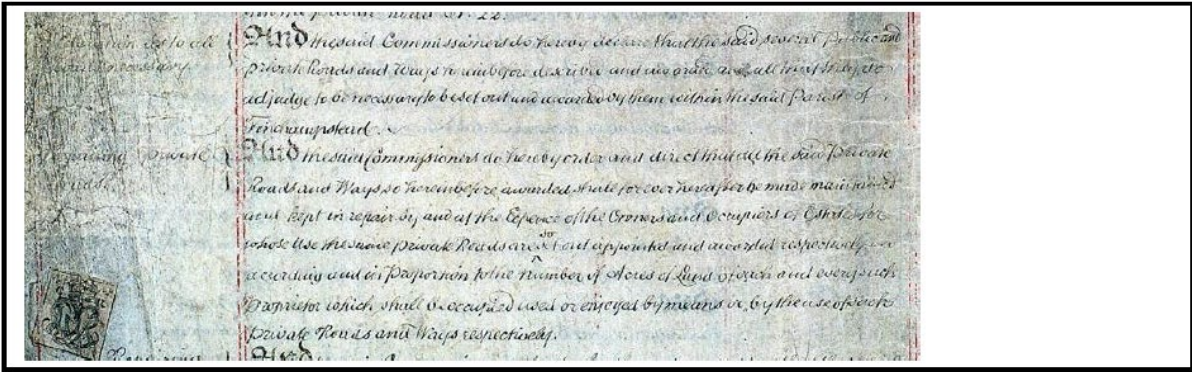 Private Road No. 22.
And the said Commissioners do hereby declare that the said several Public and
Private Roads and Ways hereinbefore described and awarded are all that they do
adjudge to be necessary to be set out and awarded by them within the said Parish of
Finchampstead.
necessary
And the said Commissioners do hereby order and direct that all the said Private
Repairing Private
Roads and Ways so hereinbefore awarded shall for ever hereafter be made maintained
Roads
and kept in repair by and at the Expence of the Owners and Occupiers of Estates for
whose Use the same Private Roads are so set out appointed and awarded respectively
according and in Proportion to the Number of Acres of Land of each and every such
Proprietor which shall be occupied used or enjoyed by means or by the use of such
Private Roads and Ways respectively.
And